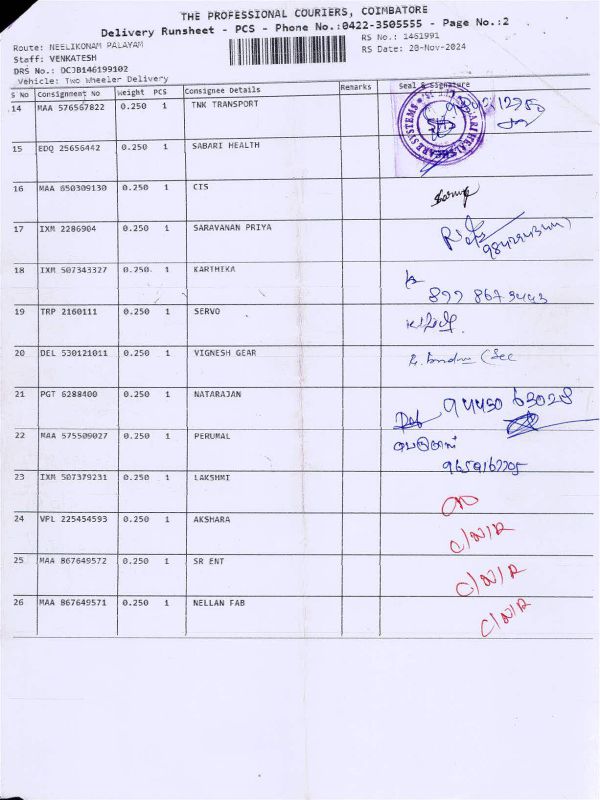 THE PROFESSIONAL COURIERS, COIMBATORE
Delivery Runsheet - PCS - Phone No.:0422-3505555 - Page No.:2
Route: NEELIKONAM PALAYAM
RS No.: 1461991
Staff: VENKATESH
RS Date: 20-Nov-2024
DRS No.: DCJB146199102
Vehicle: Two Wheeler Delivery
S No Consignment No Weight PCS Consignee Details Remarks Seal & Signature
14 MAA 576567822 0.250 1 TNK TRANSPORT
15 EDQ 25656442 0.250 1 SABARI HEALTH
16 MAA 650309130 0.250 1 CIS
17 IXM 2286904 0.250 1 SARAVANAN PRIYA
18 IXM 507343327 0.250. 1 KARTHIKA
19 TRP 2160111 0.250 1 SERVO
20 DEL 530121011 0.250 1 VIGNESH GEAR
21 PGT 6288400 0.250 1 NATARAJAN 94430 63028
22 MAA 575509027 0.250 1 PERUMAL
9659162205
23 IXM 507379231 0.250 1 LAKSHMI
24 VPL 225454593 0.250 1 AKSHARA C/N/R
25 MAA 867649572 0.250 1 SR ENT C/N/R
26 MAA 867649571 0.250 1 NELLAN FAB C/N/R